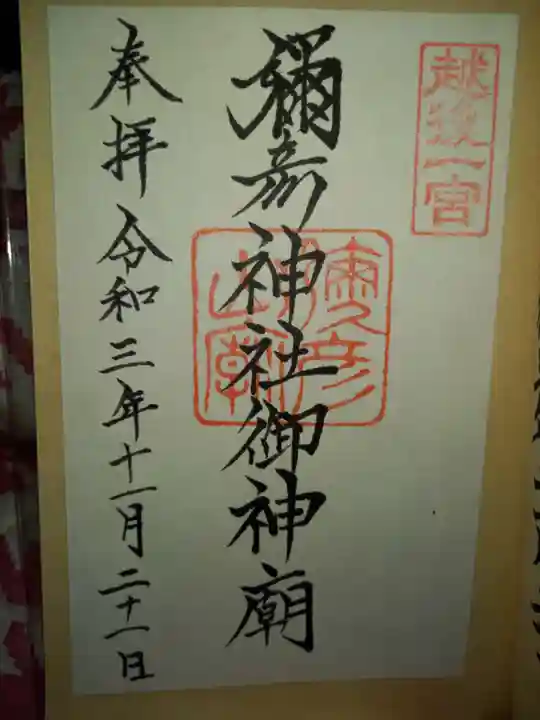 越後一宮
彌彦神社御神廟
奉拝令和三年十一月二十一日